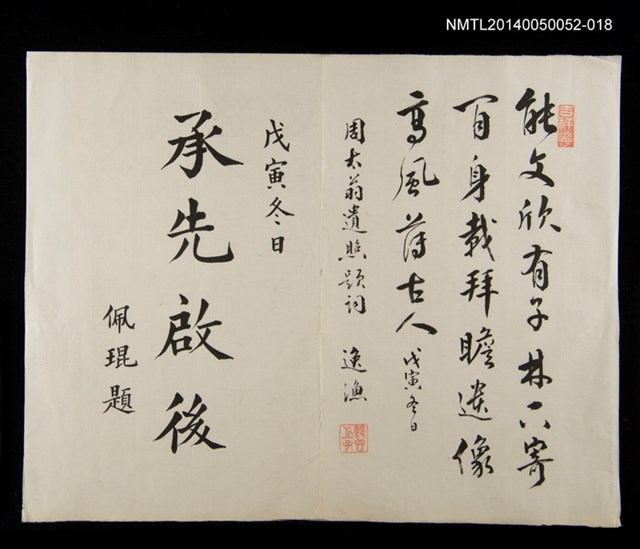 NMTL20140050052-018
能文欣有子林下寄
閒身載拜瞻遺像
高風薄古人 戊寅冬日
周大翁遺照題詞 逸漁
戊寅冬日
承先啟後
佩琨題